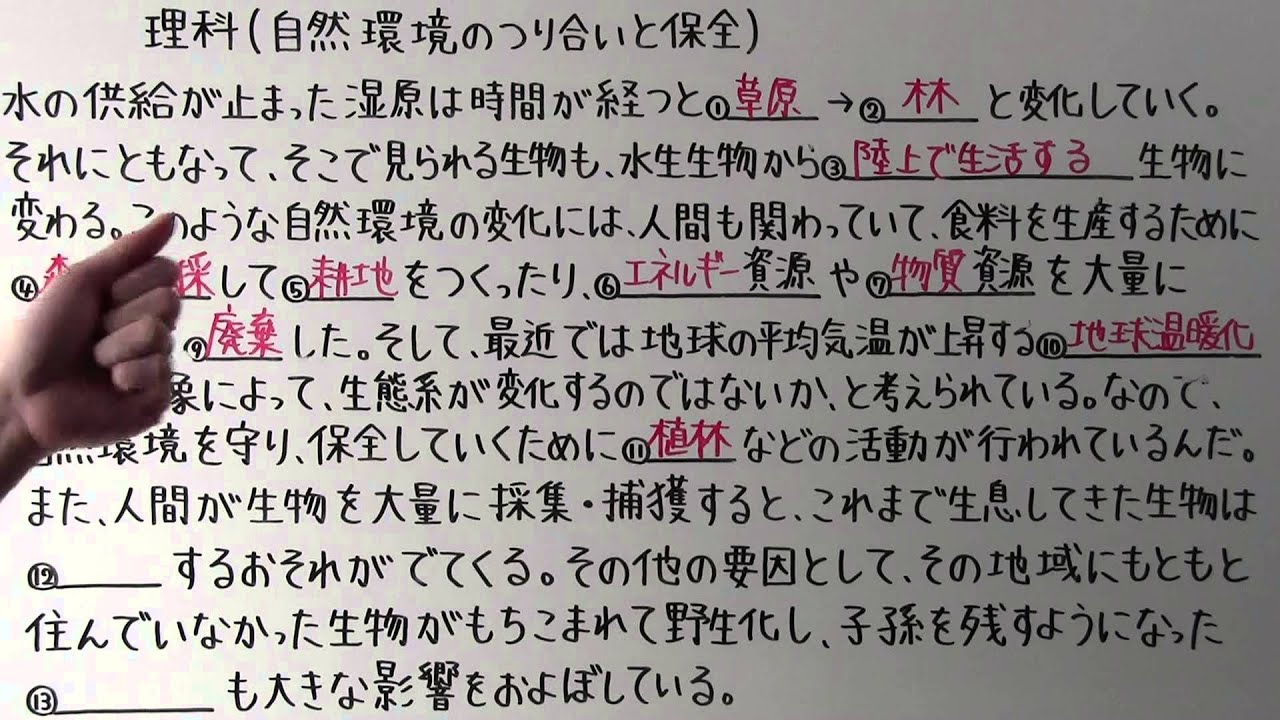 理科(自然環境のつり合いと保全)
水の供給が止まった湿原は時間が経つと①草原→②林と変化していく。
それにともなって、そこで見られる生物も、水生生物から③陸上で生活する生物に
変わる。このような自然環境の変化には、人間も関わっていて、食料を生産するために
④ 採して⑤耕地をつくったり、⑥エネルギー資源や⑦物質資源を大量に
⑨廃棄した。そして、最近では地球の平均気温が上昇する⑩地球温暖化
象によって、生態系が変化するのではないか、と考えられている。なので、
環境を守り、保全していくために⑪植林などの活動が行われているんだ。
また、人間が生物を大量に採集・捕獲すると、これまで生息してきた生物は
⑫______するおそれがでてくる。その他の要因として、その地域にもともと
住んでいなかった生物がもちこまれて野生化し、子孫を残すようになった
⑬________も大きな影響をおよぼしている。